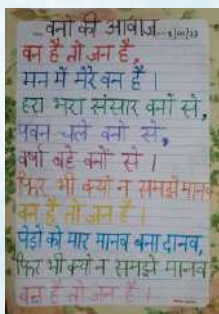 वनों की आवाज
वन है तो जन है,
मन में मेरे वन है।
हरा भरा संसार वनों से,
पवन चले वनों से,
वर्षा बहे वनों से।
फिर भी क्यों न समझे मानव
वन है तो जन है।
पेड़ो को मार मानव बना दानव,
फिर भी क्यों न समझे मानव
वन है तो जन है।